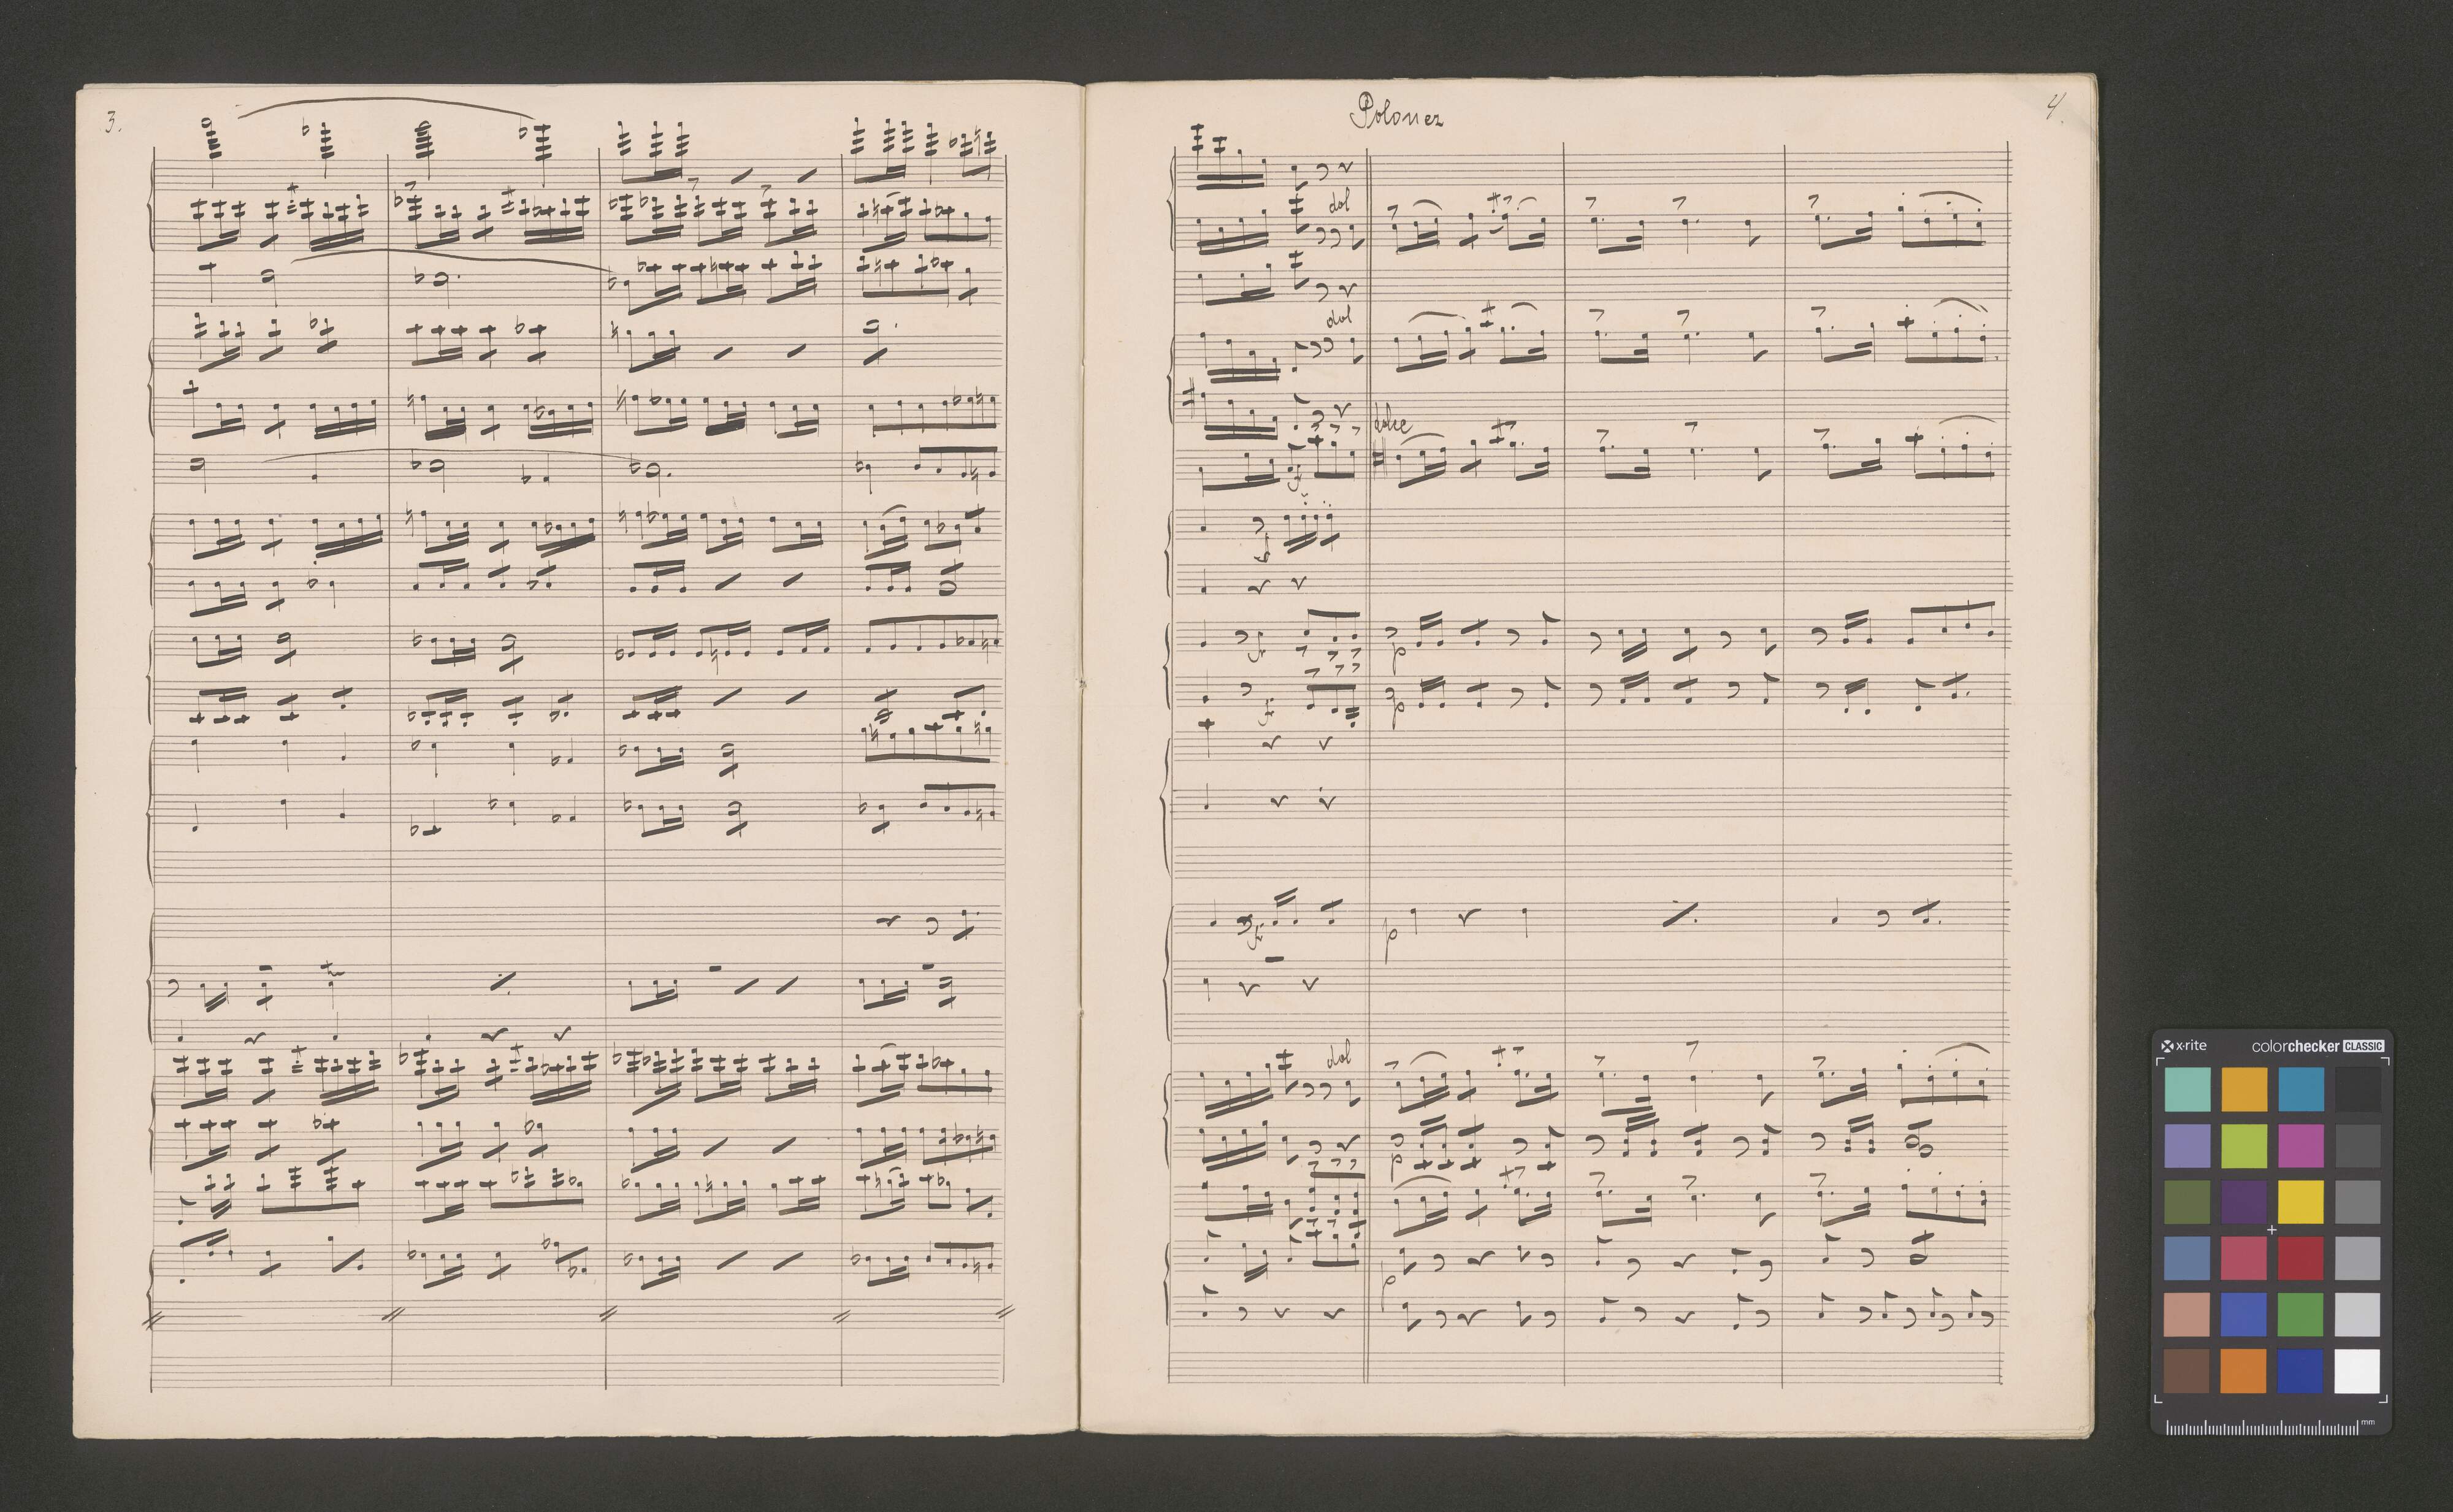 3.
Polonez
4.
dol
dol
dolce
f
f
p
f
p
f
p
dol
p
p
x-rite
colorchecker CLASSIC
mm